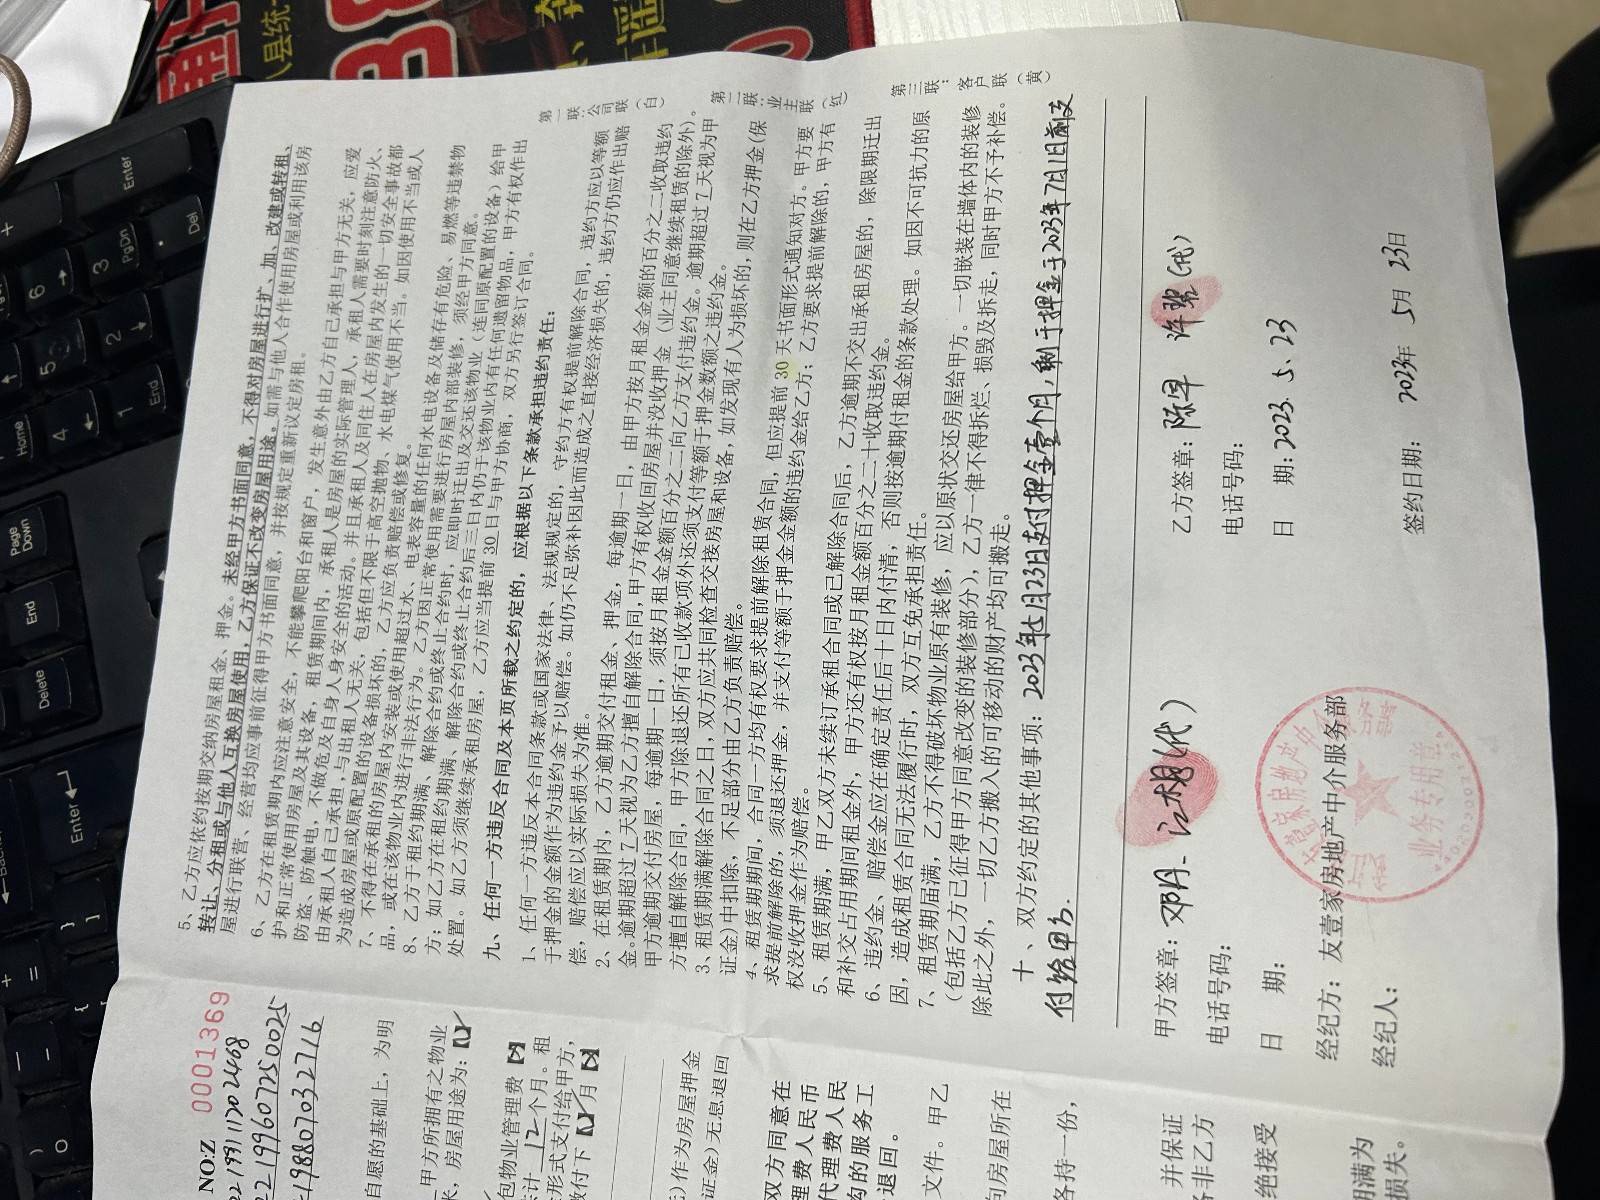 NO:Z 0001369
自愿的基础上，为明
甲方所拥有之物业
房屋用途为：【
包物业管理费【
12个月。租
形式支付给甲方，
付下【 】月【
作为房屋押金
证金)无息退回
双方同意在
理费人民币
代理费人民
的服务工
退回。
文件。甲乙
向房屋所在
各持一份，
并保证
非乙方
绝接受
期满为
损失。
5、乙方应依约按期交纳房屋租金、押金。未经甲方书面同意，不得对房屋进行扩、加、改建或转租、
转让、分租或与他人互换房屋使用，乙方保证不改变房屋用途。如需与他人合作使用房屋或利用该房
屋进行联营、经营均应事前征得甲方书面同意，并按规定重新议定房租。
6、乙方在租赁期内应注意安全，不能攀爬阳台和窗户，发生意外由乙方自己承担与甲方无关，应爱
护和正常使用房屋及其设备，租赁期间内，承租人是房屋的实际管理人，承租人需要时刻注意防火、
防盗、防触电，不做危及自身人身安全的活动。并且承租人及同住人在房屋内发生的一切安全事故都
由承租人自己承担，与出租人无关，包括但不限于高空抛物、水电煤气使用不当。如因使用不当或人
为造成房屋或原配置的设备损坏的，乙方应负责赔偿或修复。
7、不得在承租的房屋内安装或使用超过水、电表容量的任何水电设备及储存有危险、易燃等违禁物
品，或在该物业内进行非法行为。乙方因正常使用需要进行房屋内部装修，须经甲方同意。
8、乙方于租约期满、解除合约或终止合约时，应即时迁出及交还该物业（连同原配置的设备）给甲
方；如乙方在租约期满、解除合约或终止合约后三日内仍于该物业内有任何遗留物品，甲方有权作出
处置。如乙方须继续承租房屋，乙方应当提前 30 日与甲方协商，双方另行签订合同。
九、任何一方违反合同及本页所载之约定的，应根据以下条款承担违约责任：
1、任何一方违反本合同条款或国家法律、法规规定的，守约方有权提前解除合同，违约方应以等额
于押金的金额作为违约金予以赔偿。如仍不足弥补因此而造成之直接经济损失的，违约方仍应作出赔
偿，赔偿应以实际损失为准。
2、在租赁期内，乙方逾期交付租金、押金，每逾期一日，由甲方按月租金金额的百分之二收取违约
金。逾期超过 7 天视为乙方擅自解除合同，甲方有权收回房屋并没收押金（业主同意继续租赁的除外）。
甲方逾期交付房屋，每逾期一日，须按月租金金额百分之二向乙方支付违约金。逾期超过 7 天视为甲
方擅自解除合同，甲方除退还所有已收款项外还须支付等额于押金数额之违约金。
3、租赁期满解除合同之日，双方应共同检查交接房屋和设备，如发现有人为损坏的，则在乙方押金(保
证金)中扣除，不足部分由乙方负责赔偿。
4、租赁期期间，合同一方均有权要求提前解除租赁合同，但应提前 30 天书面形式通知对方。甲方要
求提前解除的，须退还押金，并支付等额于押金金额的违约金给乙方；乙方要求提前解除的，甲方有
权没收押金作为赔偿。
5、租赁期满，甲乙双方未续订承租合同或已解除合同后，乙方逾期不交出承租房屋的，除限期迁出
和补交占用期间租金外，甲方还有权按月租金额百分之二十收取违约金。
6、违约金、赔偿金应在确定责任后十日内付清，否则按逾期付租金的条款处理。如因不可抗力的原
因，造成租赁合同无法履行时，双方互免承担责任。
7、租赁期届满，乙方不得破坏物业原有装修，应以原状交还房屋给甲方。一切嵌装在墙体内的装修
（包括乙方已征得甲方同意改变的装修部分），乙方一律不得拆烂、损毁及拆走，同时甲方不予补偿。
除此之外，一切乙方搬入的可移动的财产均可搬走。
十、双方约定的其他事项：2023年5月23日支付押金壹个月，剩于押金于2023年7月1日前支
付给甲方.
第一联：公司联（白）
第二联：业主联（红）
第三联：客户联（黄）
甲方签章：邓丹 江相(代)
乙方签章：陈早 许碧(代)
电话号码：
电话号码：
日 期：
日 期：2023.5.23
经纪方：友壹家房地产中介服务部
经纪人：
签约日期： 2023年 5月 23日
业务专用章
Enter
PgDn
Del
Home
End
Page Down
End
Delete
Enter